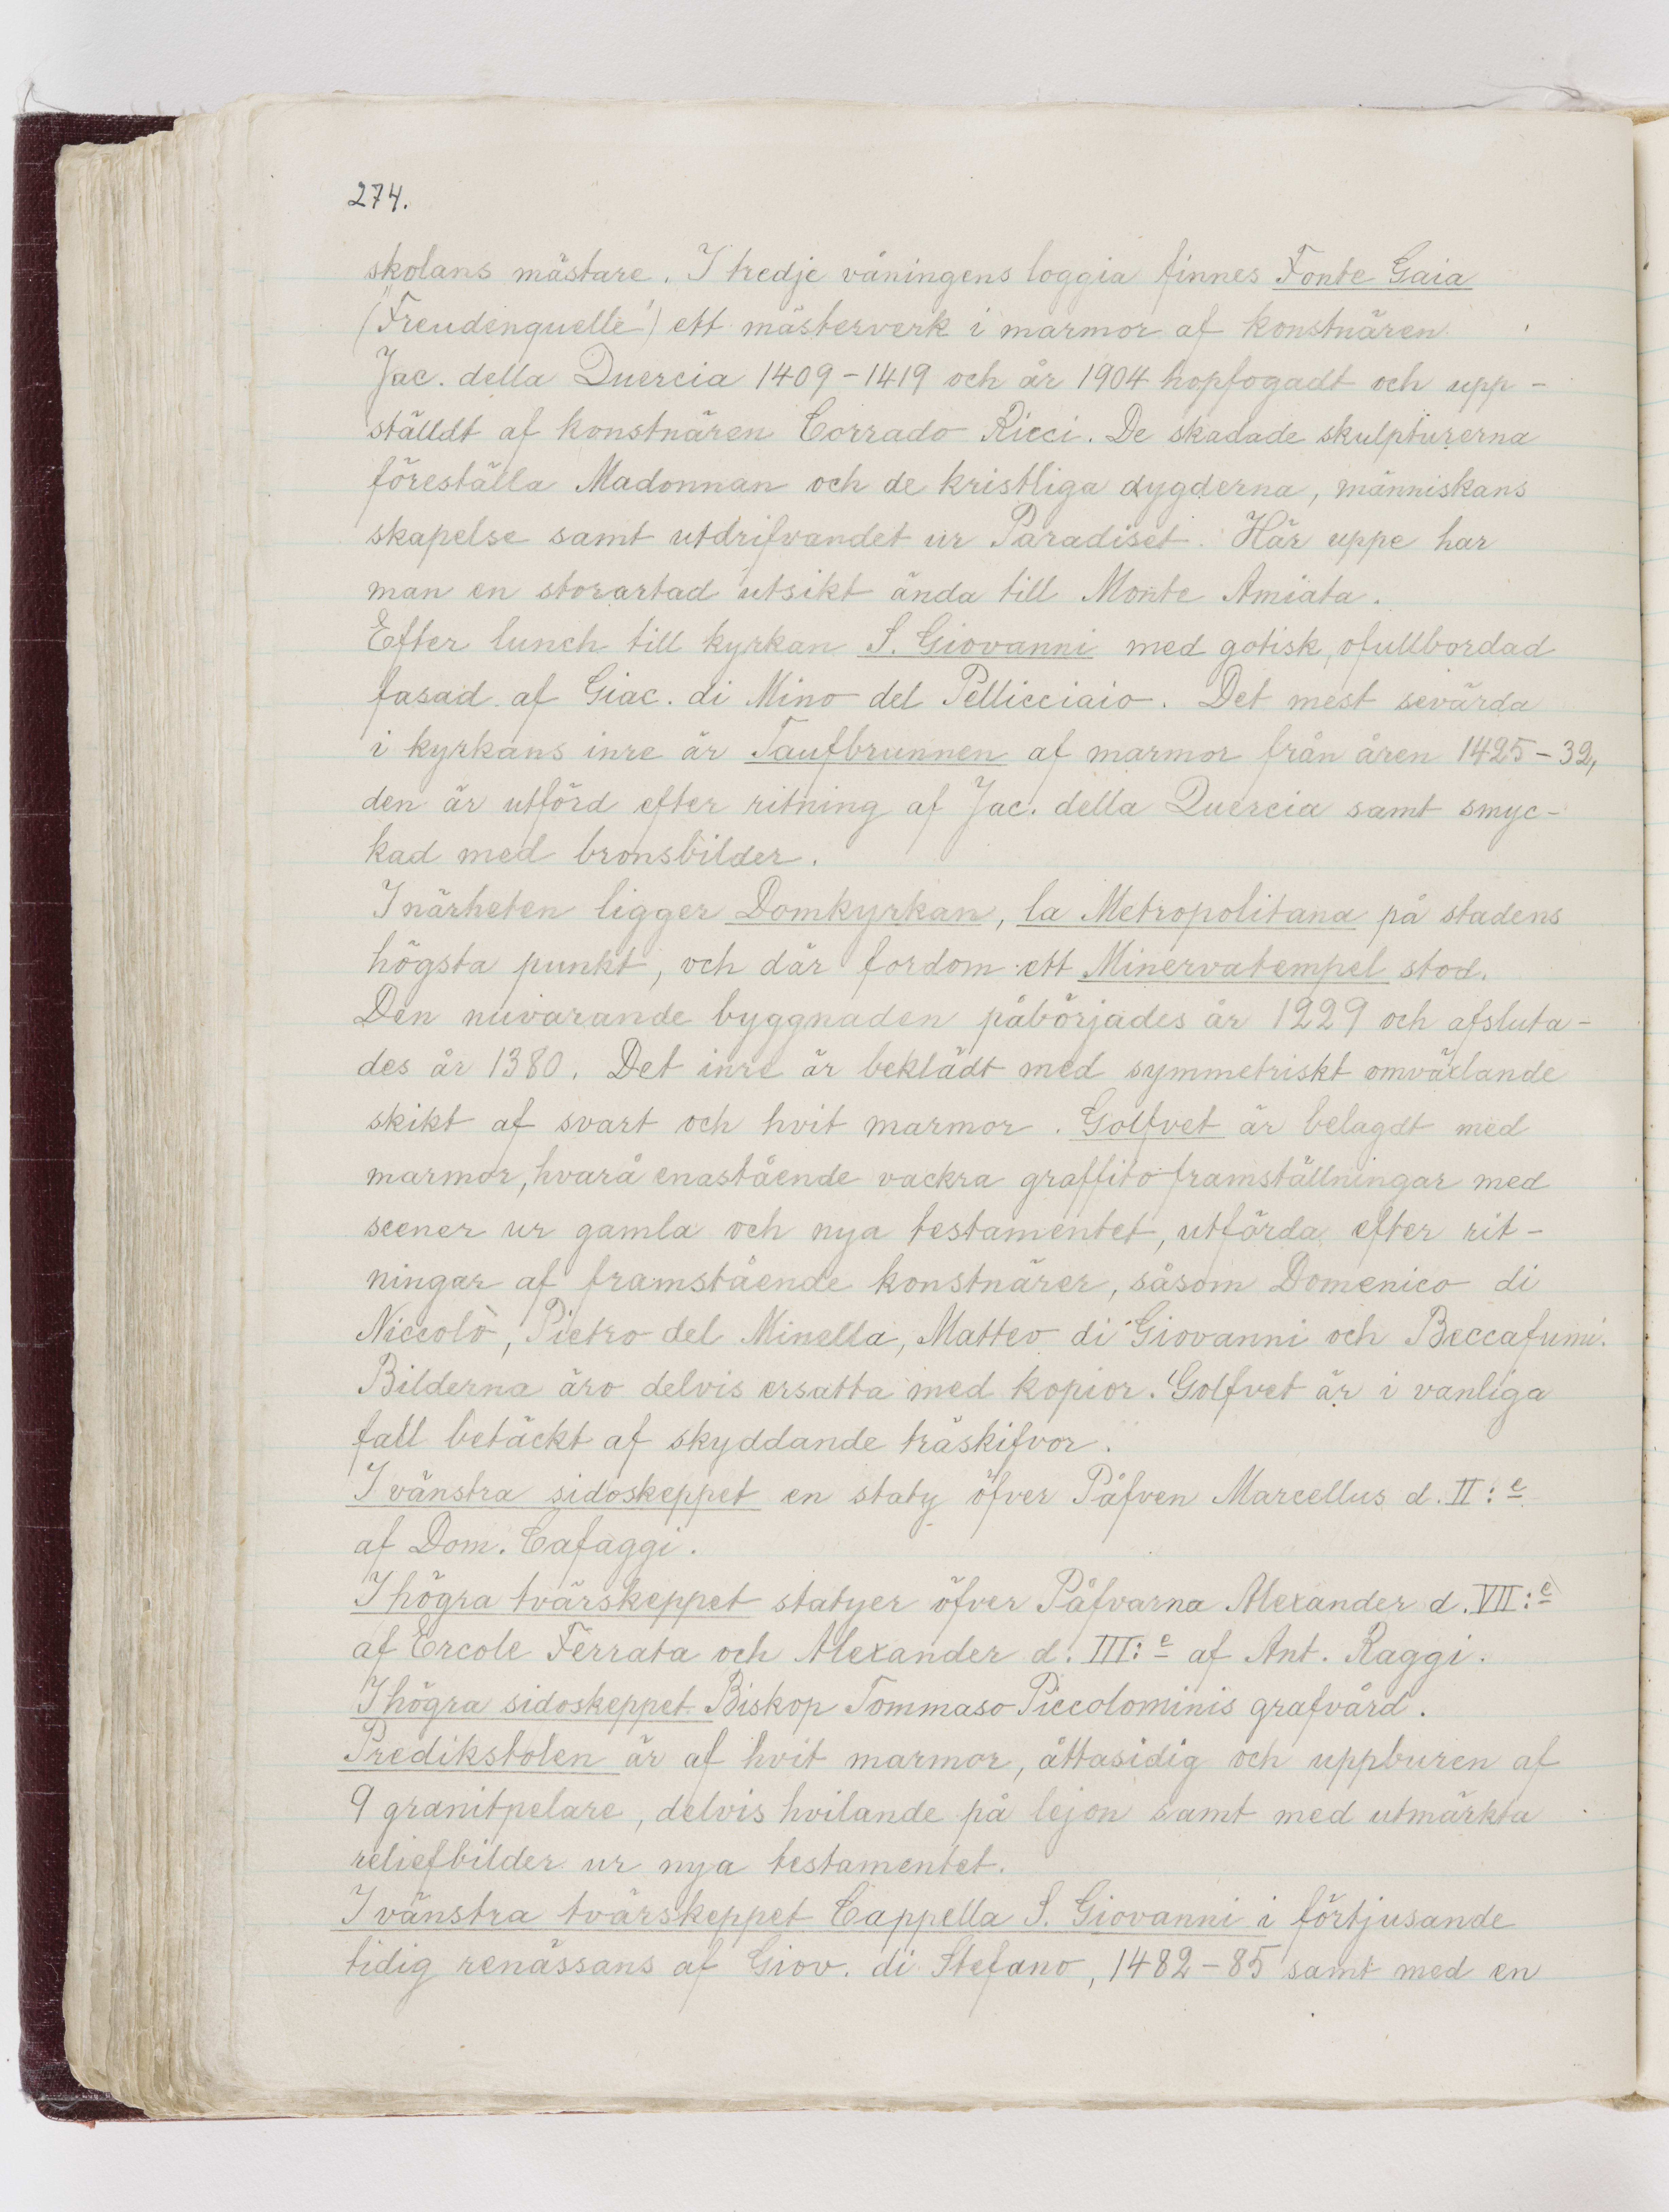 274.
skolans mästare. I tredje våningens loggia finnes Fonte Gaia
("Freudenquelle") ett mästerverk i marmor af konstnären
Jac. della Quercia 1409-1419 och år 1904 hopfogadt och upp-
ställdt af konstnären Corrado Ricci. De skadade skulpturerna
föreställa Madonnan och de kristliga dygderna, människans
skapelse samt utdrifvandet ur Paradiset. Här uppe har
man en storartad utsikt ända till Monte Amiata.
Efter lunch till kyrkan S. Giovanni med gotisk, ofullbordad
fasad af Giac. di Mino del Pellicciaio. Det mest sevärda
i kyrkans inre är Taufbrunnen af marmor från åren 1425-32,
den är utförd efter ritning af Jac. della Quercia samt smyc-
kad med bronsbilder.
I närheten ligger Domkyrkan, la Metropolitana på stadens
högsta punkt, och där fordom ett Minervatempel stod.
Den nuvarande byggnaden påbörjades år 1229 och afsluta-
des år 1380. Det inre är beklädt med symmetriskt omväxlande
skikt af svart och hvit marmor. Golfvet är belagdt med
marmor, hvarå enastående vackra graffito framställningar med
scener ur gamla och nya testamentet, utförda efter rit-
ningar af framstående konstnärer, såsom Domenico di
Niccolò, Pietro del Minella, Matteo di Giovanni och Beccafumi.
Bilderna äro delvis ersatta med kopior. Golfvet är i vanliga
fall betäckt af skyddande träskifvor.
I vänstra sidoskeppet en staty öfver Påfven Marcellus d. II:e
af Dom. Cafaggi.
I högra tvärskeppet statyer öfver Påfvarna Alexander d. VII:e
af Ercole Ferrata och Alexander d. III:e af Ant. Raggi.
I högra sidoskeppet Biskop Tommaso Piccolominis grafvård.
Predikstolen är af hvit marmor, åttasidig och uppburen af
9 granitpelare, delvis hvilande på lejon samt med utmärkta
reliefbilder ur nya testamentet.
I vänstra tvärskeppet Cappella S. Giovanni i förtjusande
tidig renässans af Giov. di Stefano, 1482-85 samt med en